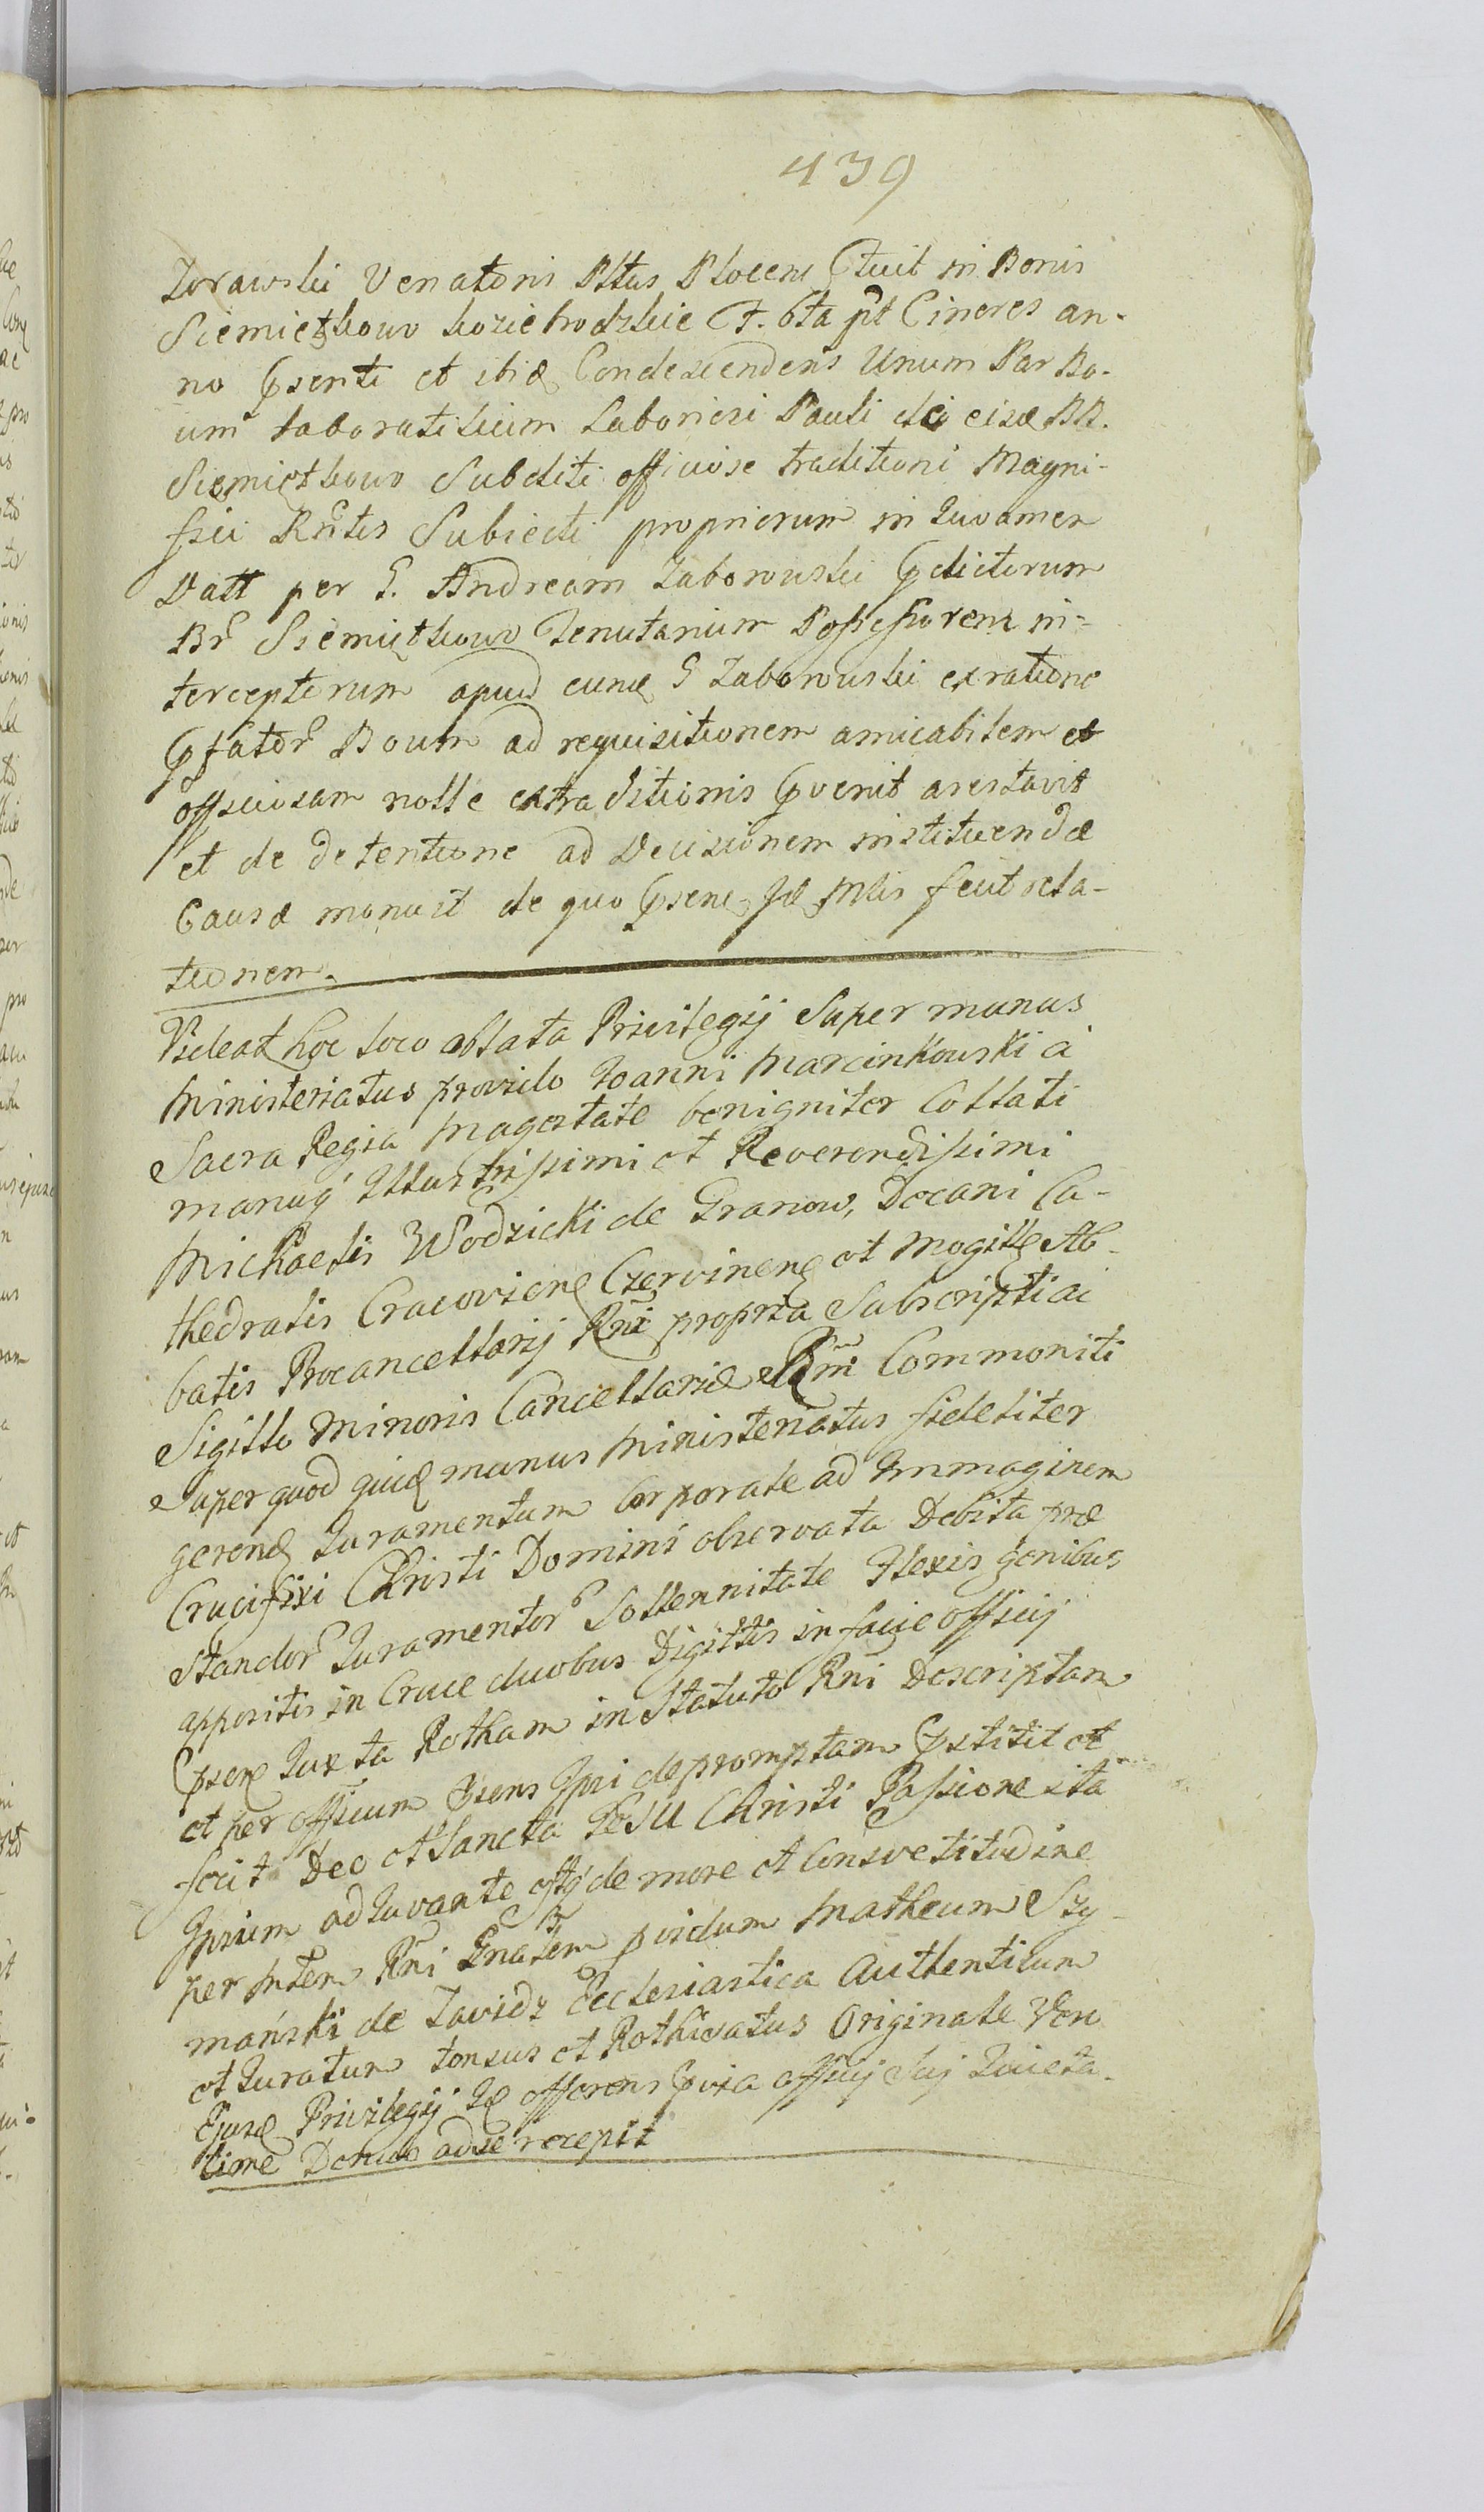 439
Zorawski Venatoris Pltus Plocens Ctuit in Bonis
Siemiętkowo koziebrodzkie F. 6ta pt Cineres an-
no Psenti et ibid Condescendens Unum Par Bo-
um laboratilium Laboriosi Pauli de eisd BB.
Siemiętkowo Subditi officiose traditioni Magni-
fici Rntis Subiecti propriorum in Iuvamen
Datt per G. Andream Zaborowski Pdictorum
Br Siemiętkowo Tenutarium Possessorem in-
terceptorum apud eund G Zaborowski ex ratione
Pfator Boum ad requisitionem amicabilem et
officiosam nolle extraditionis Pvenit arestavit
et de detentione ad Decisionem instituendæ
Causæ monuit de quo Psens Id Mlis fecit rela-
tionem.
Videat hoc loco oblata Privilegij Super munus
Ministeriatus provido Ioanni Marcinkowski a
Sacra Regia Magestate benigniter Collati
manuq Illustrissimi et Reverendissimi
Michaelis Wodzicki de Granow, Decani Ca-
thedralis Cracoviens Czervinens et Mogills Ab-
batis Procancellarij Rni propria Subscripti ac
Sigillo Minoris Cancellariæ Rni Commoniti
Super quod quid munus Ministeriatus fideliter
gerend Iuramentum Corporale ad Immaginem
Crucifixi Christi Domini observata Debita præ
standor Iuramentor Sollennitate Flexis genibus
appositis in Cruce duobus Digittis in facie officij
Psens Iuxta Rotham in Statuto Rni Descriptam
et per officium Psens Ipsi depromptam Pstitit et
fecit Deo et Sancta IESU Christi Passione ita
Ipsum adIuvante estq de more et Consvetitudine
per Mtem Rni Gnalem pvidum Matheum Szy-
mański de Zavidz Ecclesiastica Authenticum
et Iuratum tonsus et Rothivatus Originale Vero
Ejusd Privilegij Id offerens Pvia officij Sui Quieta-
tione Denuo ad se recepit